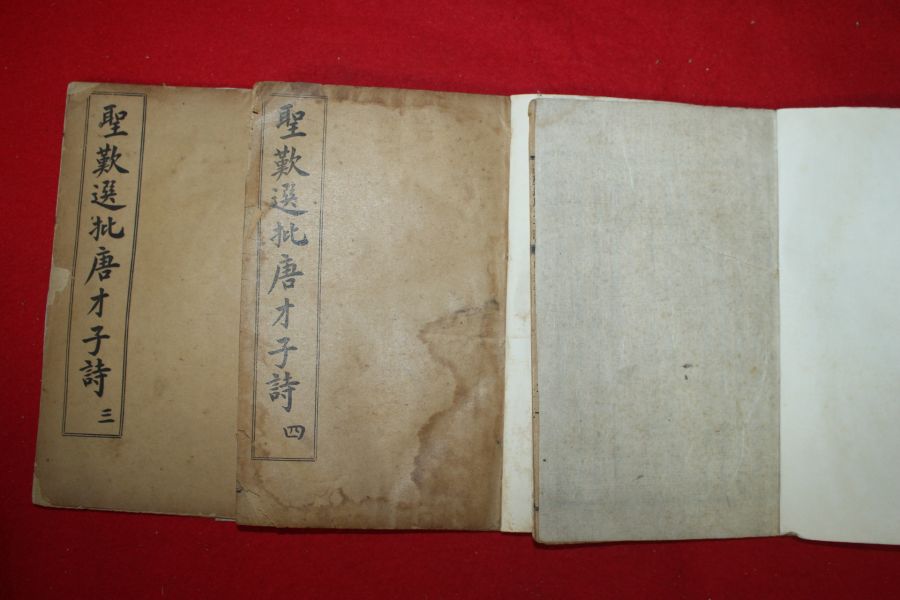 聖歎選批唐才子詩 三
聖歎選批唐才子詩 四